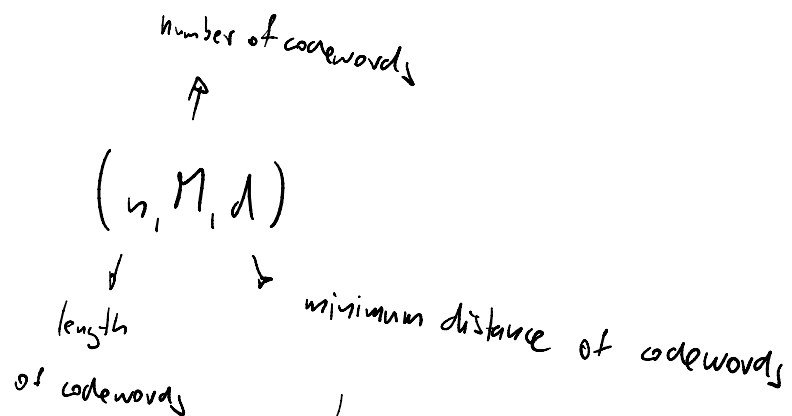 number of codewords
(n, M, d)
length
of codewords
minimum distance of codewords